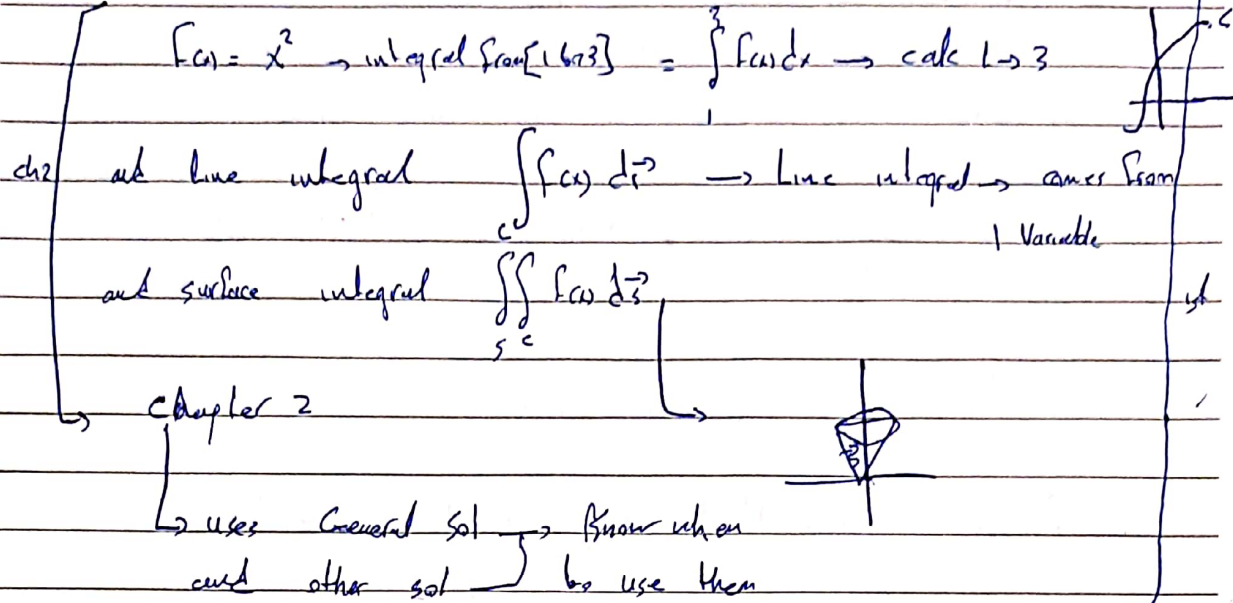 f(x) = x² → integral from [1 to 3] = ∫₁³ f(x) dx → calc 1 → 3
ch2 and line integral ∫ f(x) dr⃗ → Line integral → comes from
C
1 Variable
and surface integral ∬ f(x) ds⃗
S
Chapter 2
↳ uses General sol → Know when
and other sol to use them